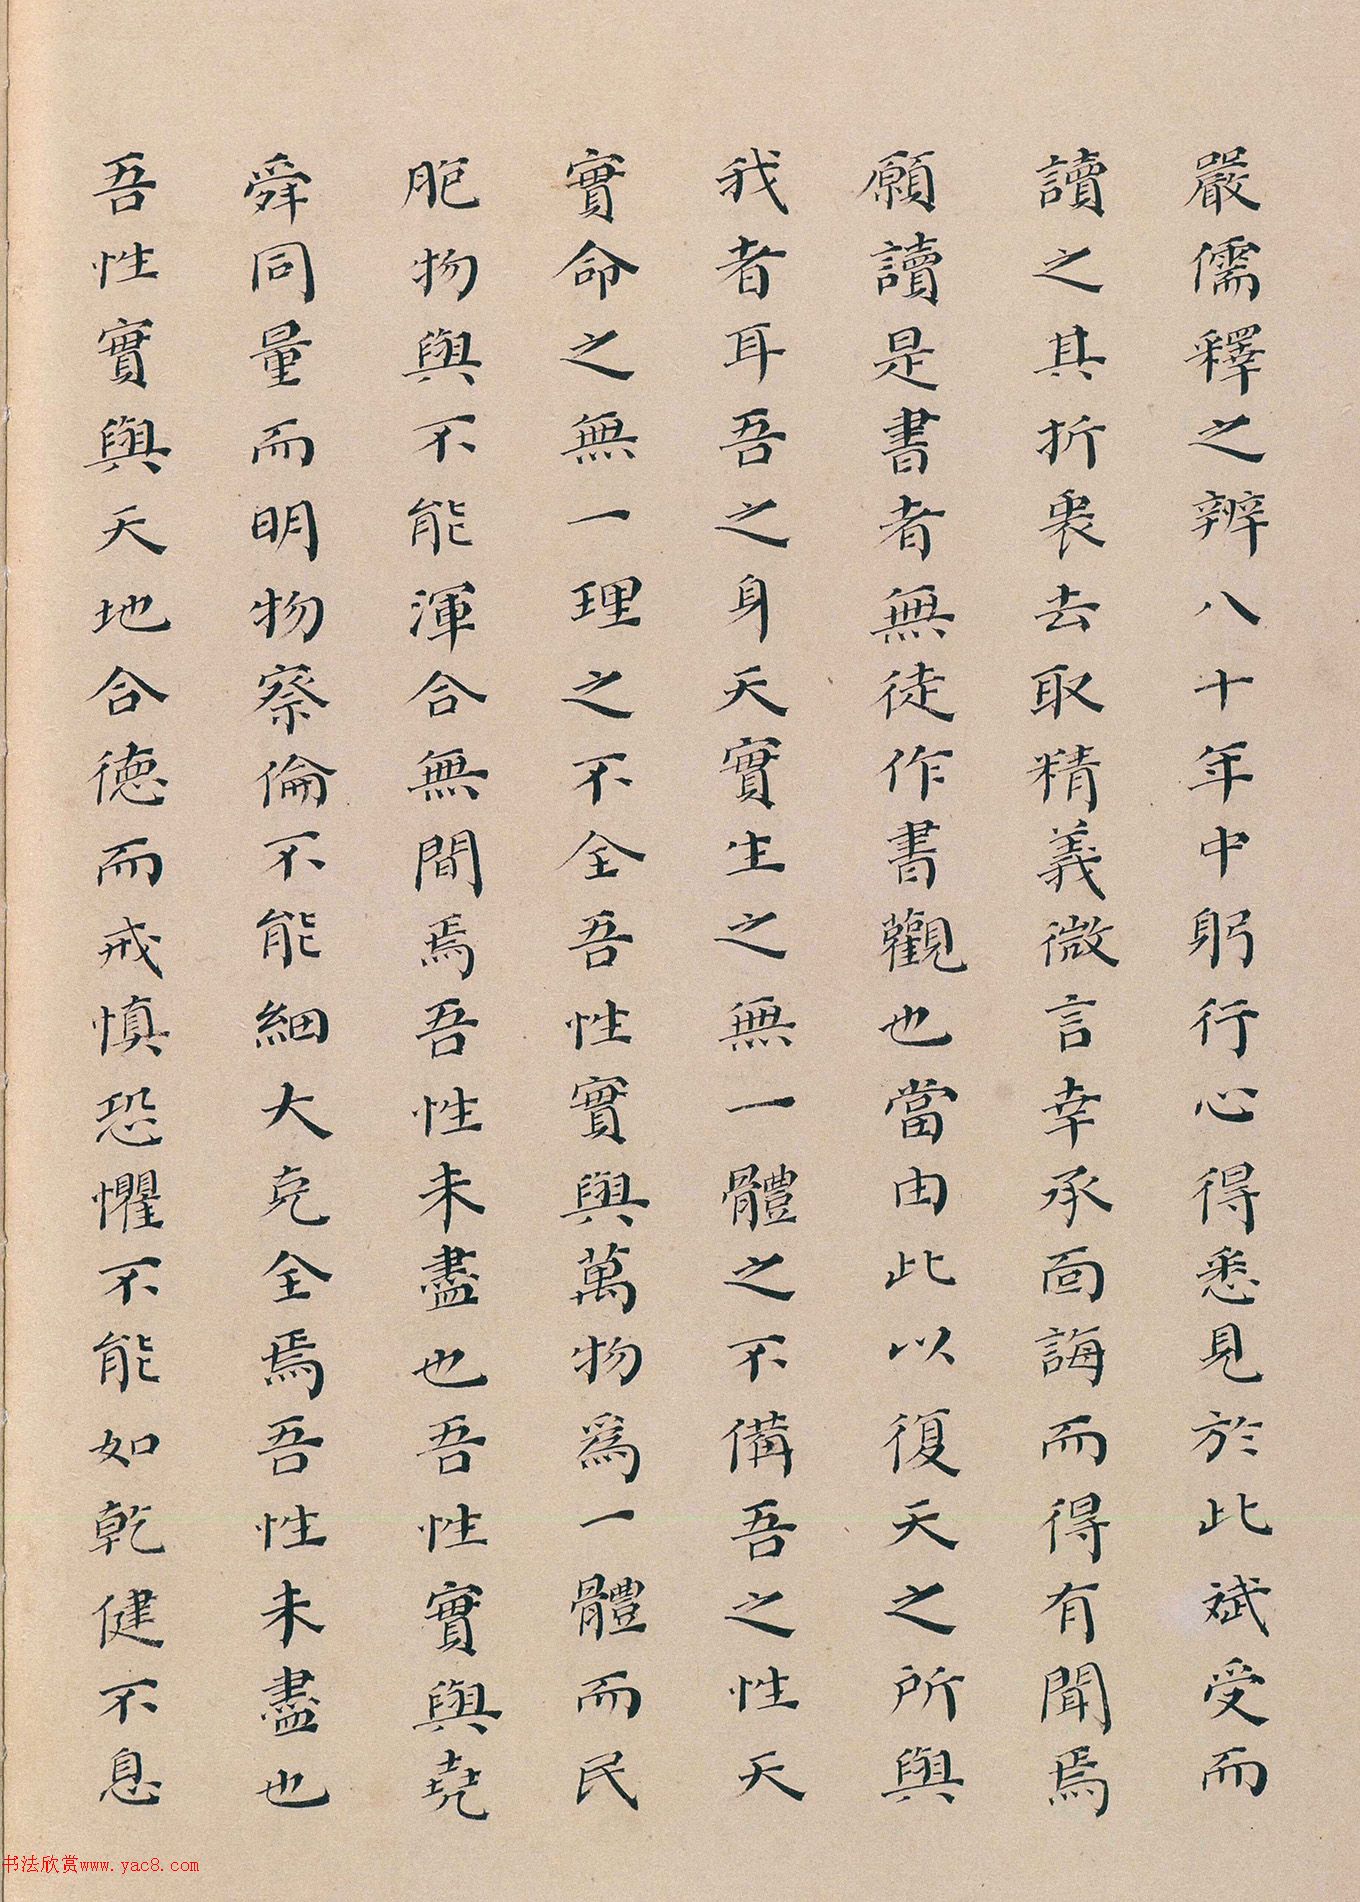 嚴儒釋之辨八十年中躬行心得悉見於此斌受而
讀之其折衷去取精義微言幸承面誨而得有聞焉
願讀是書者無徒作書觀也當由此以復天之所與
我者耳吾之身天實生之無一體之不備吾之性天
實命之無一理之不全吾性實與萬物爲一體而民
胞物與不能渾合無間焉吾性未盡也吾性實與堯
舜同量而明物察倫不能細大克全焉吾性未盡也
吾性實與天地合德而戒慎恐懼不能如乾健不息
书法欣赏www.yac8.com